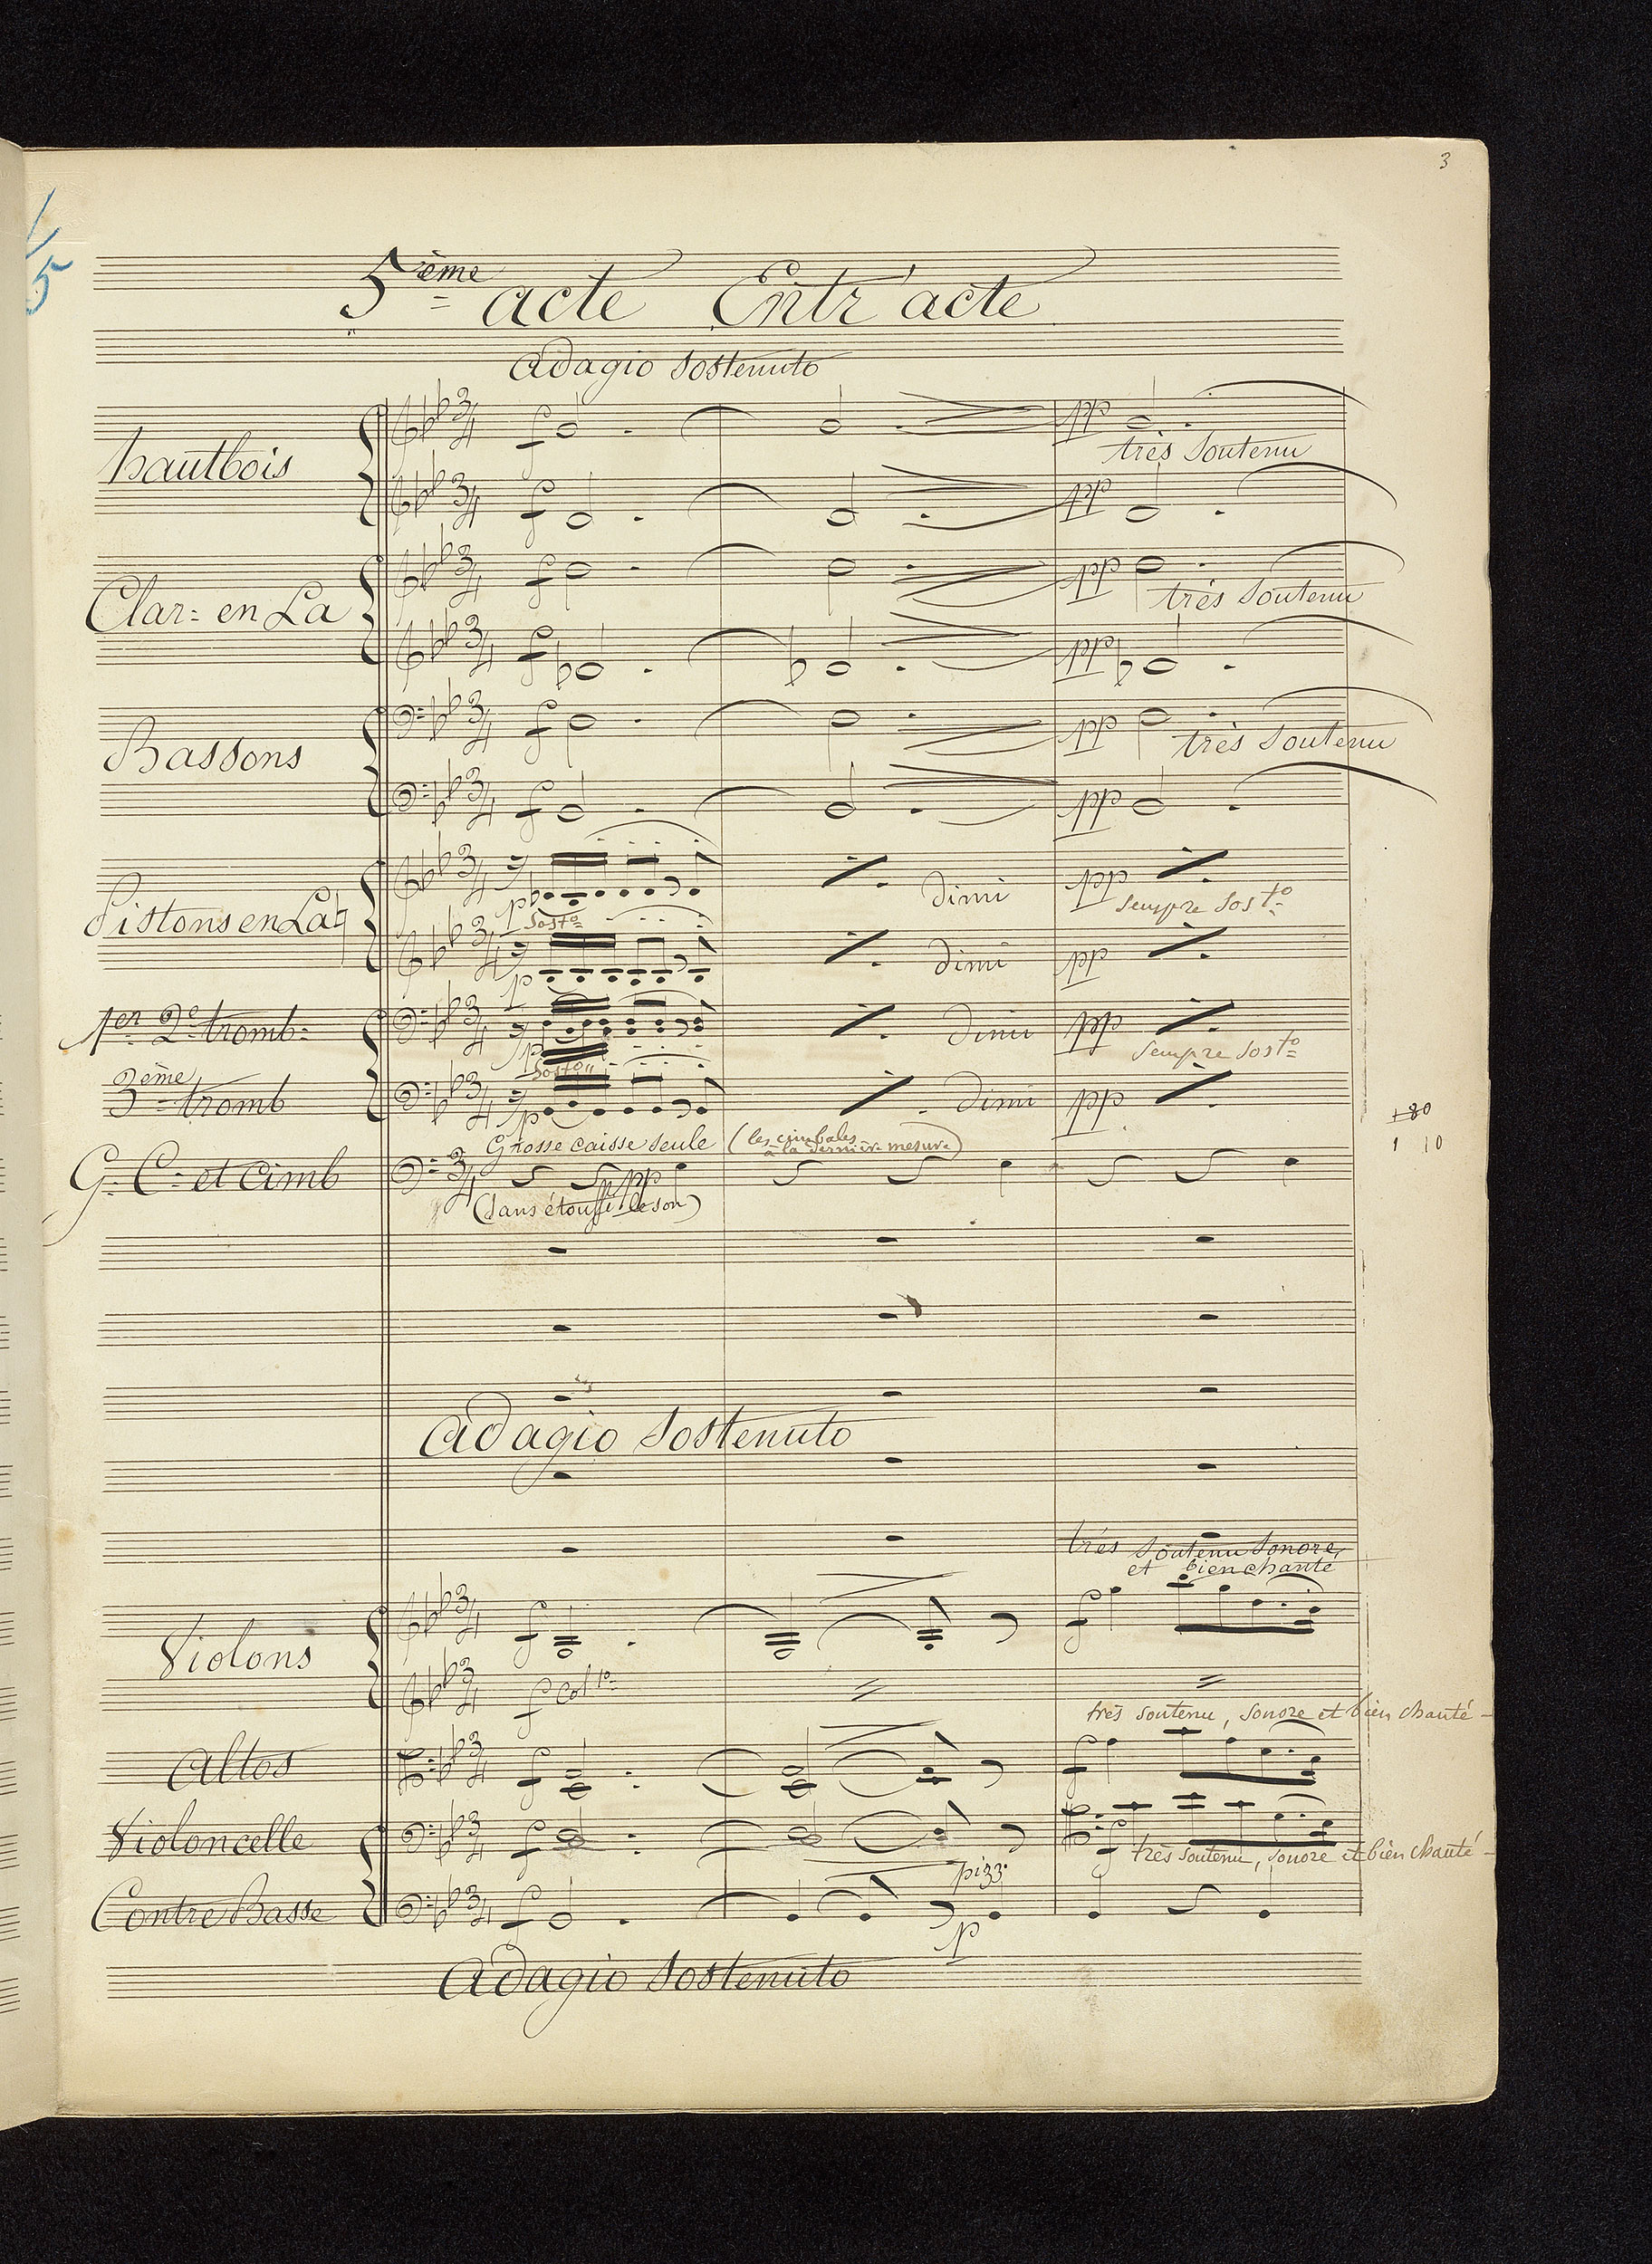 3
5
5ème acte Entr'acte
adagio sostenuto
hautbois
f
pp
très soutenu
f
pp
Clar: en La
f
pp
très soutenu
f
pp
Bassons
f
pp
très soutenu
f
pp
Pistons en La
p
sosto
dimi
pp
sempre sosto
p
dimi
pp
1er 2e tromb:
p
sosto
dimi
pp
sempre sosto
3ème tromb
p
dimi
pp
+80
1 10
G. C. et Cimb
Grosse caisse seule (les cimbales
à la dernière mesure)
pp
(sans étouffé le son)
adagio sostenuto
très soutenu sonore
et bien chanté
Violons
f
f
f Col 1o
très soutenu, sonore et bien chanté
altos
f
f
Violoncelle
f
f
très soutenu, sonore et bien chanté
pizz.
Contre Basse
f
p
adagio sostenuto